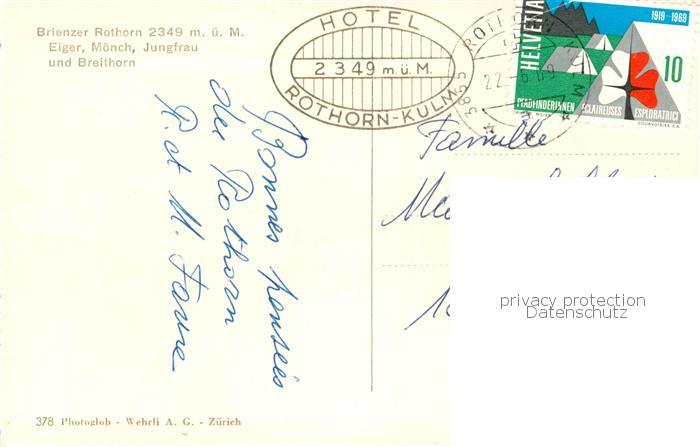 Brienzer Rothorn 2349 m. ü. M.
Eiger, Mönch, Jungfrau
und Breithorn
HOTEL
2349 m.ü.M.
ROTHORN-KULM
3855 ROTHORN
22.-6.69
HELVETIA
1919-1969
10
PFADFINDERINNEN ECLAIREUSES ESPLORATRICI
COURVOISIER S.A.
Bonnes pensées
du Rothorn
R. et M. Favre
Famille
privacy protection
Datenschutz
378 Photoglob - Wehrli A. G. - Zürich